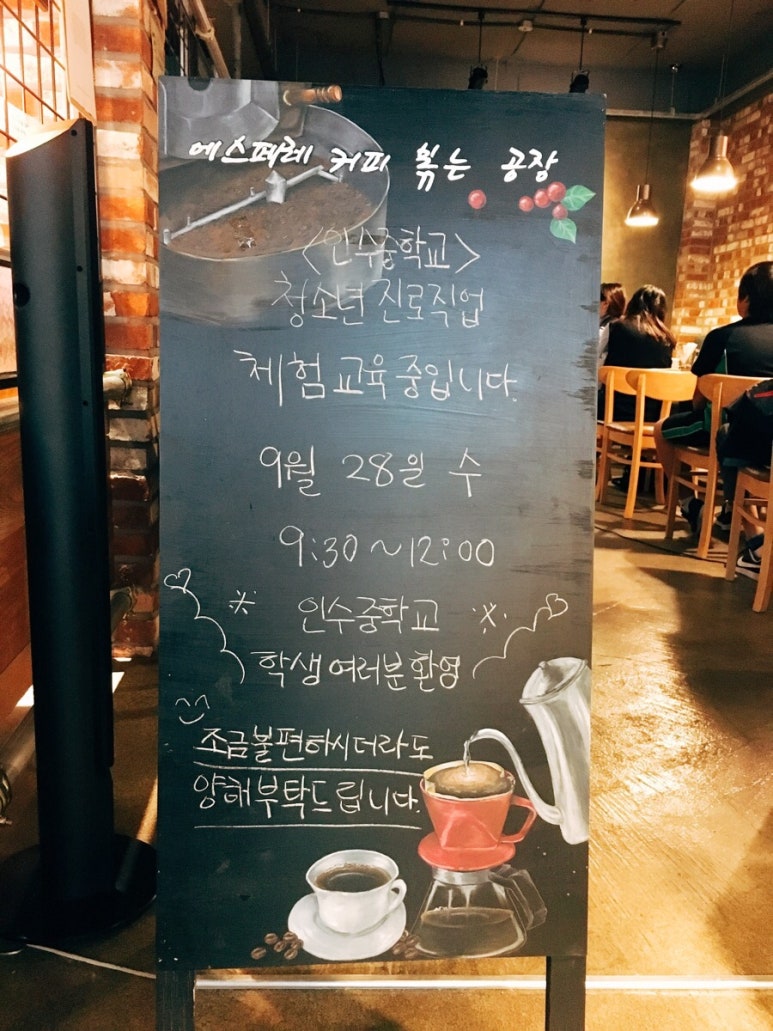 에스페레 커피 볶는 공장
<인수중학교>
청소년 진로직업
체험교육중입니다.
9월 28일 수
9:30~12:00
인수중학교
학생여러분환영
조금불편하시더라도
양해부탁드립니다.